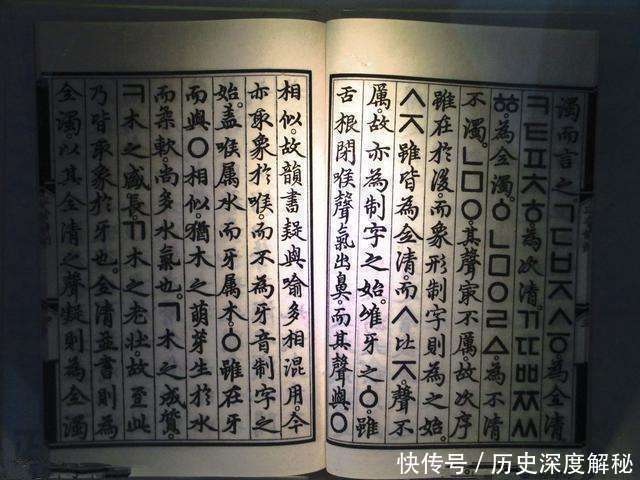 濁而言之。ㄱㄷㅂㅈㅅㆆ。為全清。
ㅋㅌㅍㅊㅎ。為次清。ㄲㄸㅃㅉㅆ
ㆅ。為全濁。ㆁㄴㅁㅇㄹㅿ。為不清
不濁。ㄴㅁㅇ。其聲㝡不厲。故次序
雖在於後。而象形制字則為之始。
ㅅㅈ雖皆為全清。而ㅅ比ㅈ。聲不
厲。故亦為制字之始。唯牙之ㆁ。雖
舌根閉喉聲氣出鼻。而其聲與ㅇ
相似。故韻書疑與喻多相混用。今
亦取象於喉。而不為牙音制字之
始。盖喉屬水而牙屬木。ㆁ雖在牙
而與ㅇ相似。猶木之萌芽生於水
而柔軟。尚多水氣也。ㄱ木之成質。
ㅋ木之盛長。ㄲ木之老壯。故至此
乃皆取象於牙也。全清並書則為
全濁。以其全清之聲凝則為全濁
快传号／历史深度解秘